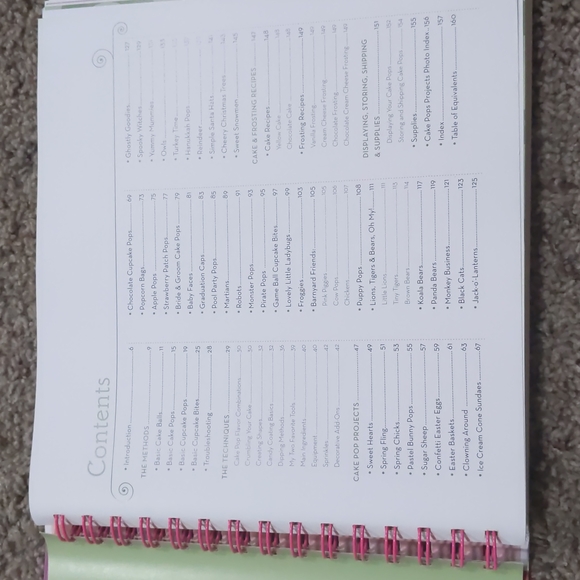 Contents
• Introduction 6
THE METHODS 9
• Basic Cake Balls 11
• Basic Cake Pops 15
• Basic Cupcake Pops 19
• Basic Cupcake Bites 25
• Troubleshooting 28
THE TECHNIQUES 29
Cake Pop Flavor Combinations 30
Crumbling Your Cake 30
Creating Shapes 32
Candy Coating Basics 32
Dipping Methods 38
My Two Favorite Tools 39
Main Ingredients 40
Equipment 40
Sprinkles 42
Decorative Add-Ons 42
CAKE POP PROJECTS 47
• Sweet Hearts 49
• Spring Fling 51
• Spring Chicks 53
• Pastel Bunny Pops 55
• Sugar Sheep 57
• Confetti Easter Eggs 59
• Easter Baskets 61
• Clowning Around 63
• Ice Cream Cone Sundaes 67
• Chocolate Cupcake Pops 69
• Popcorn Bags 73
• Apple Pops 75
• Strawberry Patch Pops 77
• Bride & Groom Cake Pops 79
• Baby Faces 81
• Graduation Caps 83
• Pool Party Pops 85
• Martians 89
• Robots 91
• Monster Pops 93
• Pirate Pops 95
• Game Ball Cupcake Bites 97
• Lovely Little Ladybugs 99
• Froggies 103
• Barnyard Friends: 105
Pink Piggies 105
Cow Pops 106
Chickens 107
• Puppy Pops 108
• Lions, Tigers & Bears, Oh My! 111
Little Lions 111
Tiny Tigers 113
Brown Bears 114
• Koala Bears 117
• Panda Bears 119
• Monkey Business 121
• Black Cats 123
• Jack-o'-Lanterns 125
• Ghostly Goodies 127
• Spooky Witches
• Yummy Mummies
• Owls
• Turkey Time
• Hanukkah Pops
• Reindeer
• Simple Santa Hats 141
• Cheery Christmas Trees 143
• Sweet Snowmen 145
CAKE & FROSTING RECIPES 147
• Cake Recipes 148
Yellow Cake
Chocolate Cake
• Frosting Recipes 149
Vanilla Frosting 149
Cream Cheese Frosting 149
Chocolate Frosting 149
Chocolate Cream Cheese Frosting 149
DISPLAYING, STORING, SHIPPING
& SUPPLIES 151
Displaying Your Cake Pops 152
Storing and Shipping Cake Pops 154
• Supplies 155
• Cake Pops Projects Photo Index 156
• Index 157
• Table of Equivalents 160